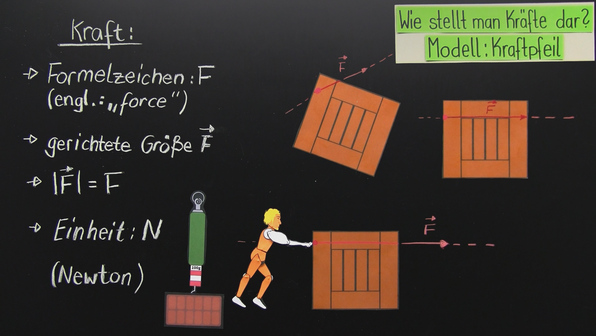 Kraft:
→ Formelzeichen: F
(engl.: „force")
→ gerichtete Größe F⃗
→ |F⃗| = F
→ Einheit: N
(Newton)
Wie stellt man Kräfte dar?
Modell: Kraftpfeil
F⃗
F⃗
F⃗